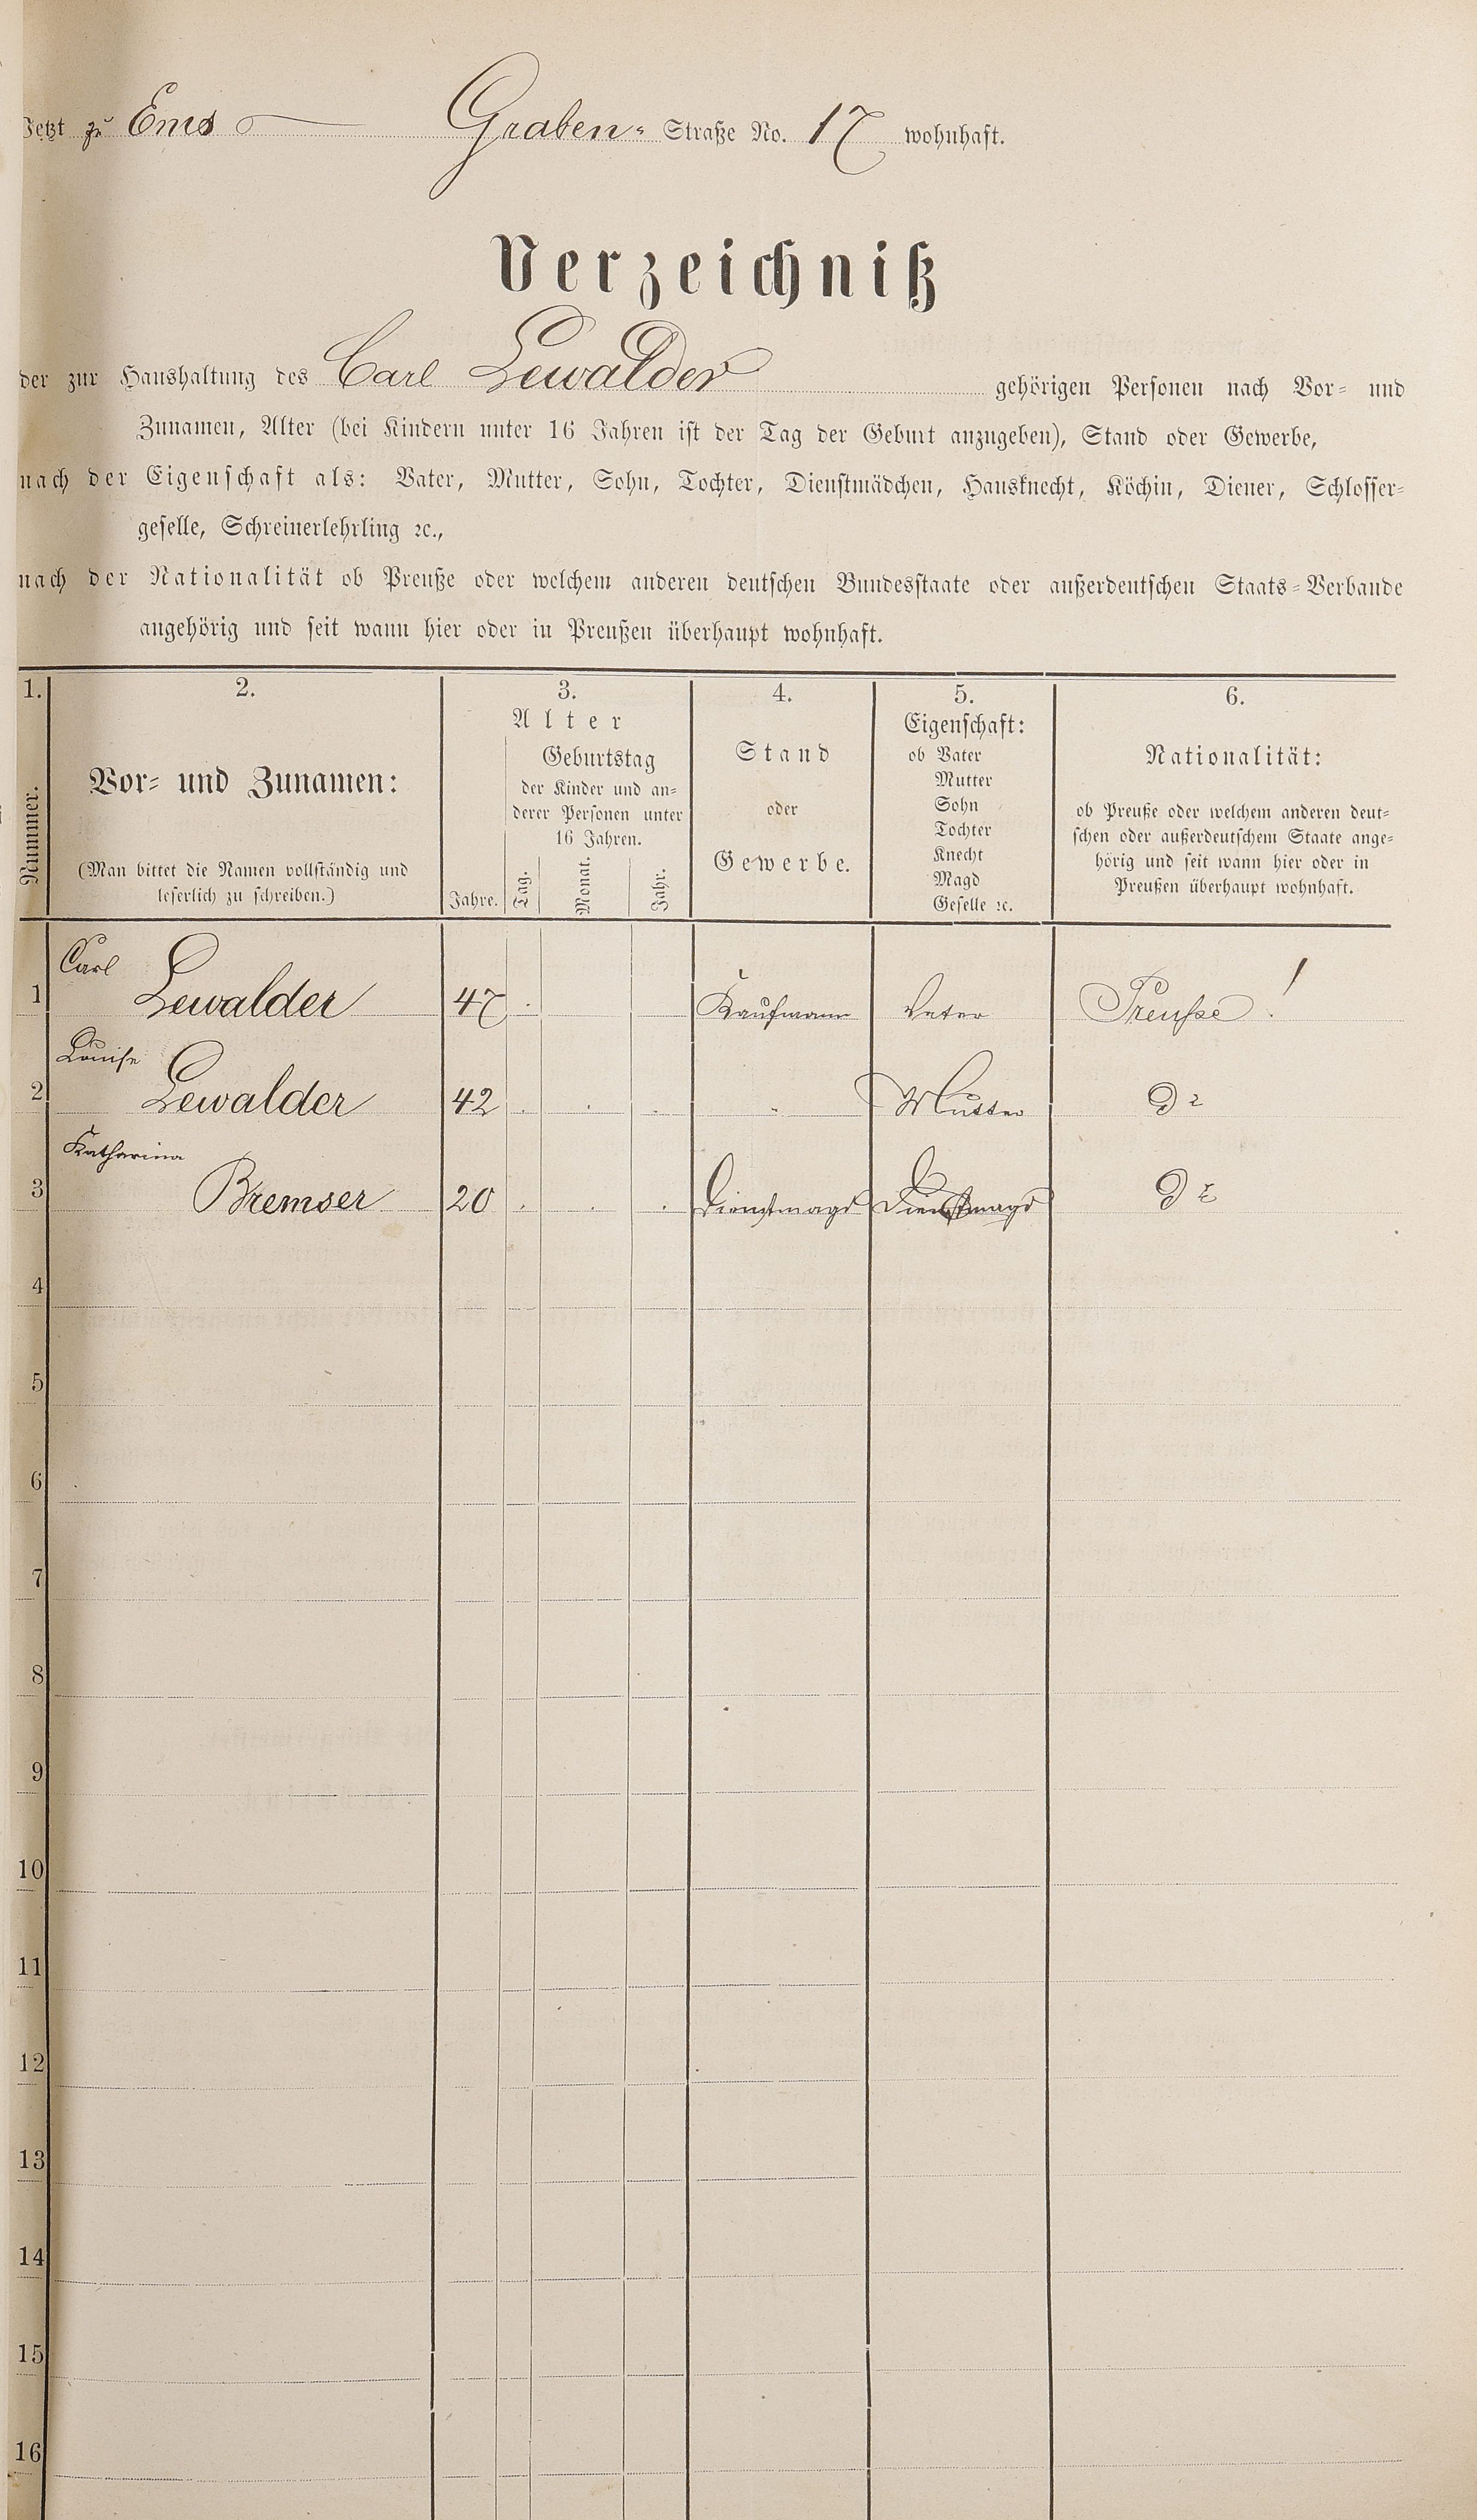 Jetzt zu Ems Graben- Straße No. 17 wohnhaft.
Verzeichniß
der zur Haushaltung des Carl Lewalder gehörigen Personen nach Vor- und
Zunamen, Alter (bei Kindern unter 16 Jahren ist der Tag der Geburt anzugeben), Stand oder Gewerbe,
nach der Eigenschaft als: Vater, Mutter, Sohn, Tochter, Dienstmädchen, Hausknecht, Köchin, Diener, Schlosser-
geselle, Schreinerlehrling ꝛc.,
nach der Nationalität ob Preuße oder welchem anderen deutschen Bundesstaate oder außerdeutschen Staats-Verbande
angehörig und seit wann hier oder in Preußen überhaupt wohnhaft.
1.
Nummer.
2.
Vor- und Zunamen:
(Man bittet die Namen vollständig und
leserlich zu schreiben.)
3.
Alter
Jahre.
Geburtstag
der Kinder und an-
derer Personen unter
16 Jahren.
Tag. Monat. Jahr.
4.
Stand
oder
Gewerbe.
5.
Eigenschaft:
ob Vater
Mutter
Sohn
Tochter
Knecht
Magd
Geselle ꝛc.
6.
Nationalität:
ob Preuße oder welchem anderen deut-
schen oder außerdeutschem Staate ange-
hörig und seit wann hier oder in
Preußen überhaupt wohnhaft.
Carl
1 Lewalder 47 Kaufmann Vater Preuße !
Louise
2 Lewalder 42 Mutter do
Katharina
3 Bremser 20 Dienstmagd Dienstmagd do
4
5
6
7
8
9
10
11
12
13
14
15
16